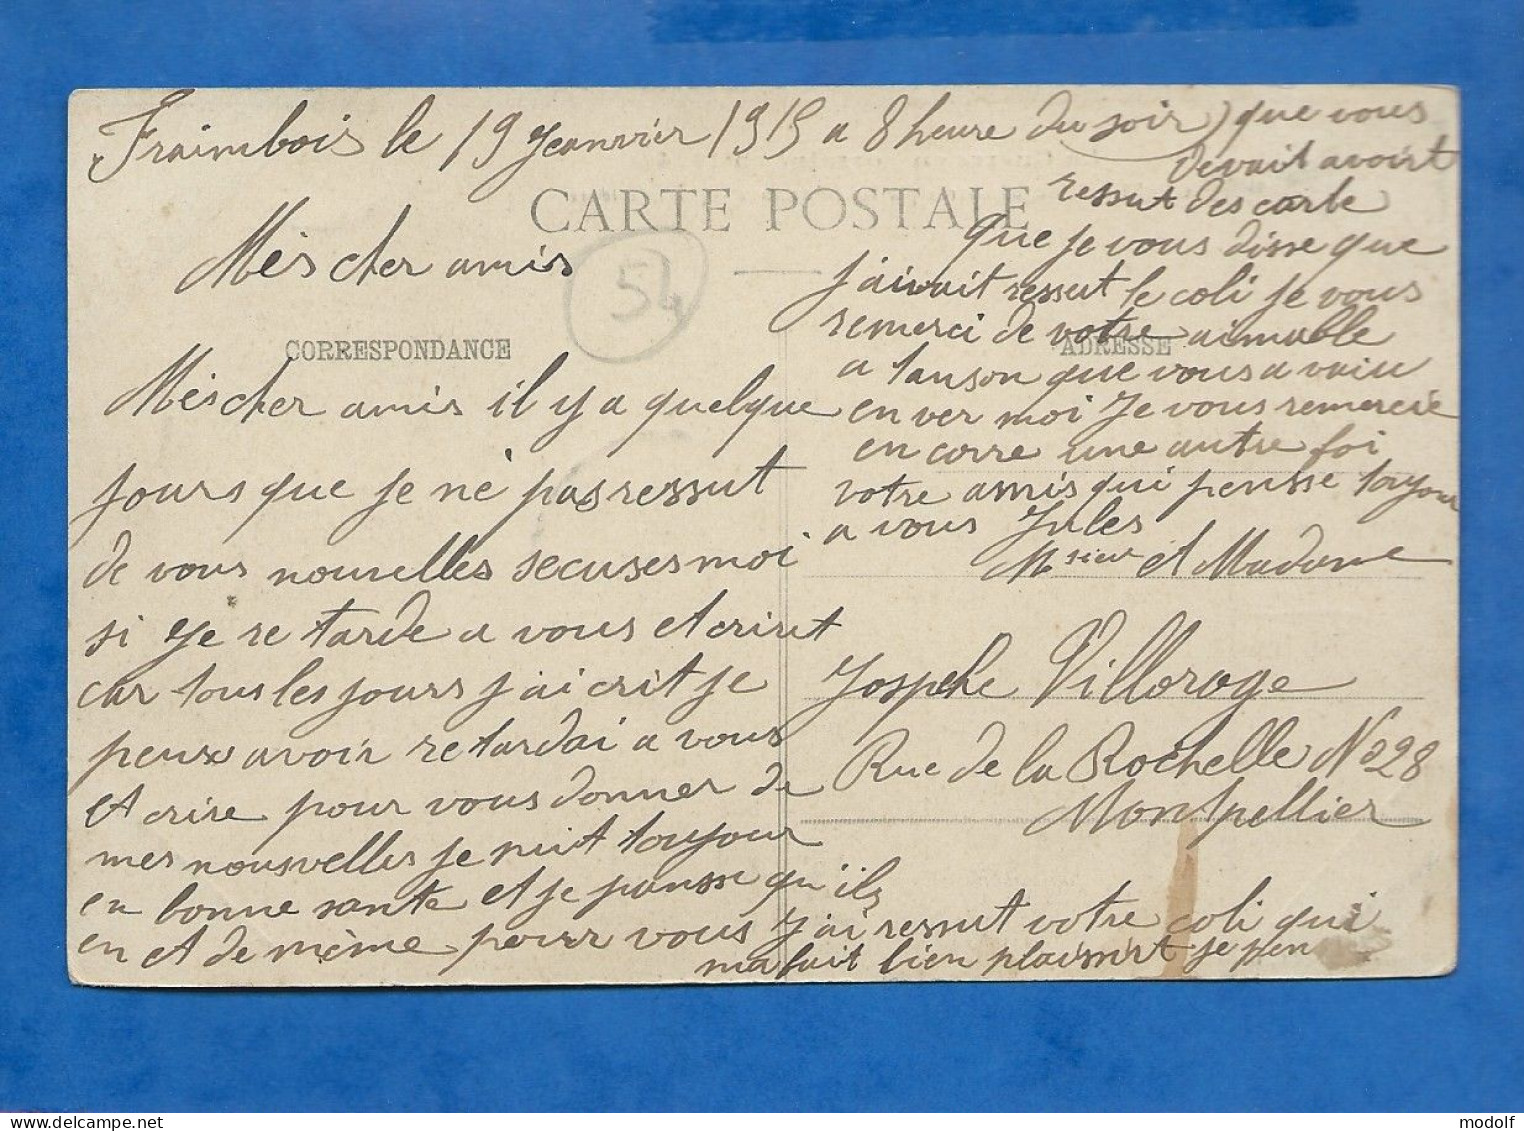 Fraimbois le 19 Jeanvier 1915 a 8 heure du soir
CARTE POSTALE
Mes cher amis
54
CORRESPONDANCE
Mes cher amis il y a quelque
jours que je né pas ressut
de vous nouvelles secuses moi
si je retarde a vous et crirt
car tous les jours j'ai crit je
peux avoir retardai a vous
et crire pour vous donner de
mes nouvelles je suit toujour
en bonne sante et je pansse qu'ils
en et de même pour vous j'ai ressut votre coli qui
ma fait bien plaissirt je pen
que vous
devait avoirt
ressut des carte
que je vous disse que
j'aivait ressut le coli je vous
remerci de votre aimable
ADRESSE
a tanson que vous avaiu
en ver moi Je vous remercie
en corre une autre foi
votre amis qui pensse toujour
a vous Jules
Msieur et Madame
Jospehe Villorage
Rue de la Rochelle No 28
Montpellier
modolf